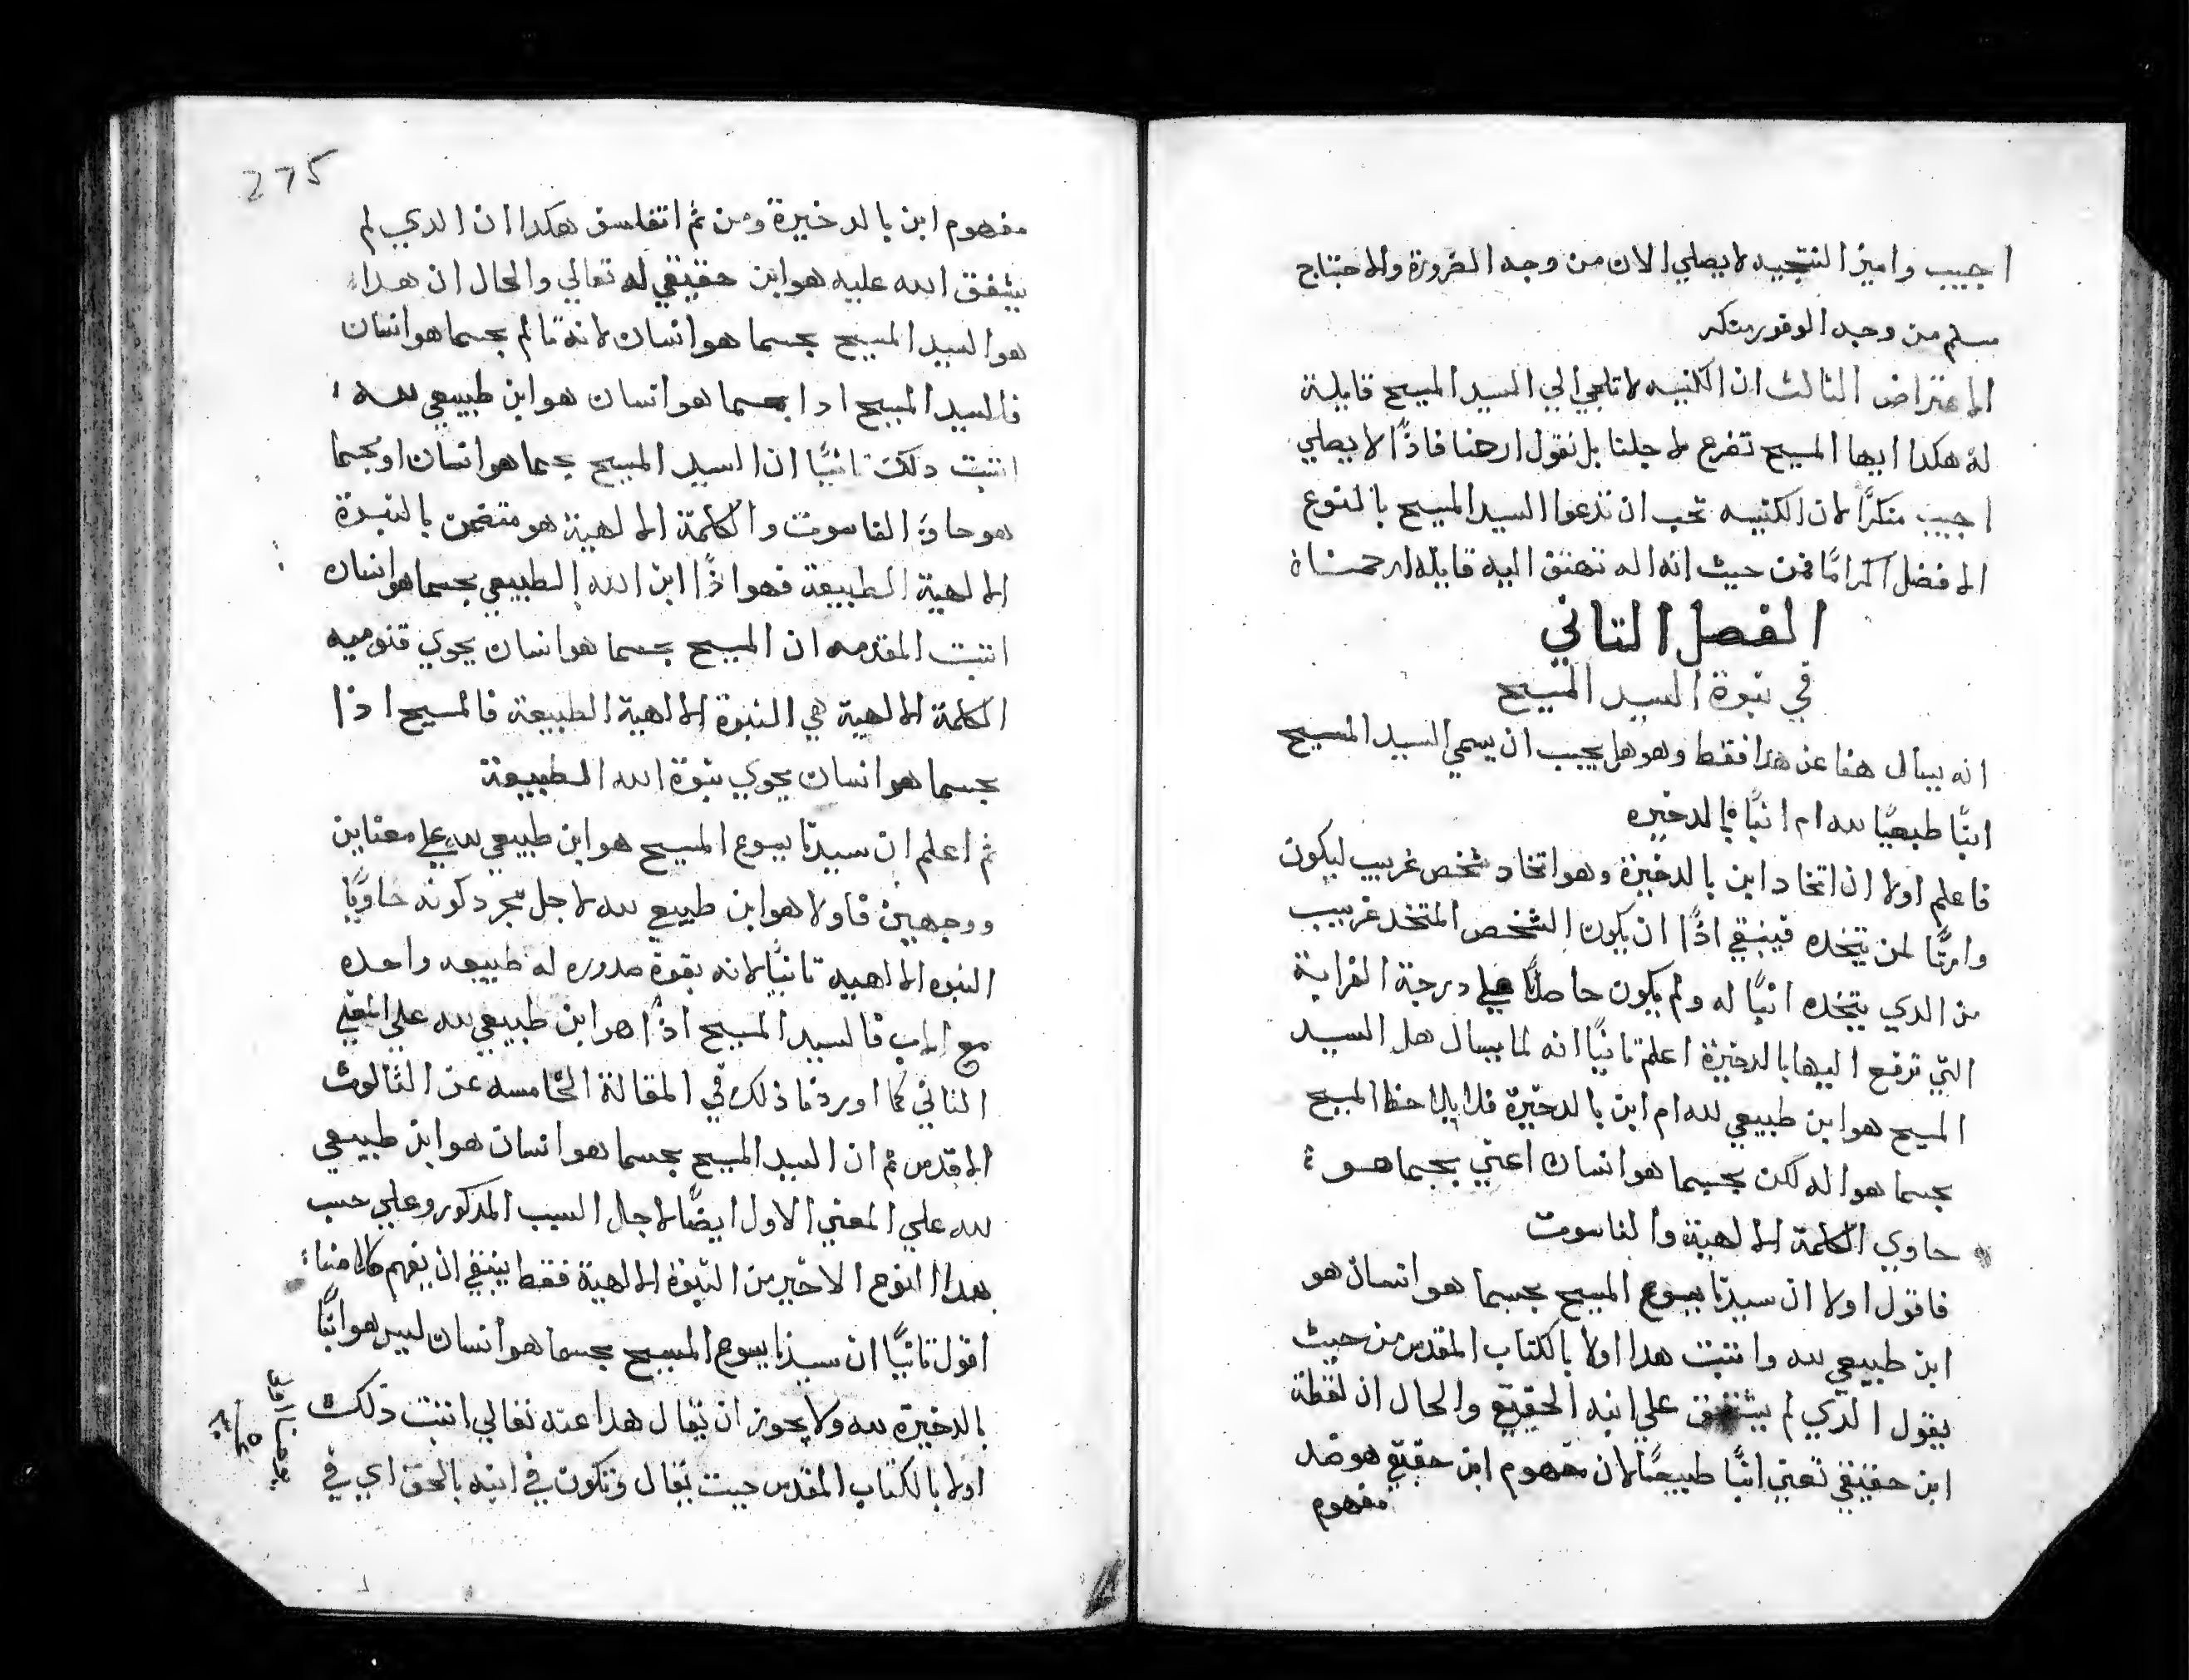 اجيب واميز النتيجيه لا يصلي الان من وجه الضرورة والاحتياج
مسلم من وجه الوقور منكر
الاعتراض الثالث ان الكنيسه لا تلجي الي السيد المسيح قايلة
له هكدا ايها المسيح تضرع لاجلنا بل نقول ارحمنا فاذًا لا يصلي
اجيب منكرًا لان الكنيسه تحب ان تدعوا السيد المسيح بالنوع
الافضل اكرامًا فمن حيث انه اله تهتف اليه قايله ارحمنا
الفصل التاني
في بنوة السيد المسيح
انه يسال هنا عن هدا فقط وهو هل يجب ان يسمي السيد المسيح
ابنًا طبيعيًا لله ام ابنًا بالدخيره
فاعلم اولا ان اتخاد ابن بالدخيرة وهو اتخاد شخص غريب ليكون
وارتًا لمن يتخده فينبغي اذًا ان يكون الشخص المتخد غريب
من الدي يتخده ابنًا له ولم يكون حاصلًا علي درجة القرابة
التي ترتفع اليها بالدخيرة اعلم تانيًا انه لما يسال هل السيد
المسيح هو ابن طبيعي لله ام ابن بالدخيرة فلا يلاحظ المسيح
بحسبما هو اله لكن بحسبما هو انسان اعني بحسبما هو
حاوي الكلمة الالهية والناسوت
فاقول اولا ان سيدنا يسوع المسيح بحسبما هو انسان هو
ابن طبيعي لله واتبت هدا اولا بالكتاب المقدس من حيث
يقول الدي لم يشفق علي ابنه الحقيقي والحال ان لفظة
ابن حقيقي تعني ابنًا طبيعيًا لان مفهوم ابن حقيقي هو ضد
مفهوم
275
مفهوم ابن بالدخيرة ومن ثم اتفلسف هكدا ان الدي لم
يشفق الله عليه هو ابن حقيقي له تعالي والحال ان هدا
هو السيد المسيح بحسبما هو انسان لانه تالم بحسبما هو انسان
فالسيد المسيح ادا بحسبما هو انسان هو ابن طبيعي لله
اتبت دلك تانيًا ان السيد المسيح بحسبما هو انسان او بحسبما
هو حاوي الناسوت والكلمة الالهية هو متضمن بالبنوة
الالهية الطبيعة فهو اذًا ابن الله الطبيعي بحسبما هو انسان
اتبت المقدمه ان المسيح بحسبما هو انسان يحوي قنوميه
الكلمة الالهية هي البنوة الالهية الطبيعة فالمسيح اذا
بحسبما هو انسان يحوي بنوة الله الطبيعة
ثم اعلم ان سيدنا يسوع المسيح هو ابن طبيعي لله علي معنايين
ووجهين فاولا هو ابن طبيعي لله لاجل مجرد كونه حاويًا
البنوه الالهيه تانيًا لانه بقوة صدوره له طبيعه واحده
مع الاب فالسيد المسيح اذًا هو ابن طبيعي لله علي المعني
التاني كما اوردنا ذلك في المقالة الخامسه عن الثالوث
الاقدس ثم ان السيد المسيح بحسبما هو انسان هو ابن طبيعي
لله علي المعني الاول ايضًا لاجل السبب المدكور وعلي حسب
هدا النوع الاخير من البنوة الالهية فقط ينبغي ان يفهم كلامنا
اقول تانيًا ان سيدنا يسوع المسيح بحسبما هو انسان ليس هو ابنًا
بالدخيره لله ولا يجوز ان يقال هدا عنه تعالي اتبت ذلك
اولا بالكتاب المقدس حيت يقال ونكون في ابنه بالحق اي في
يوحنا اول